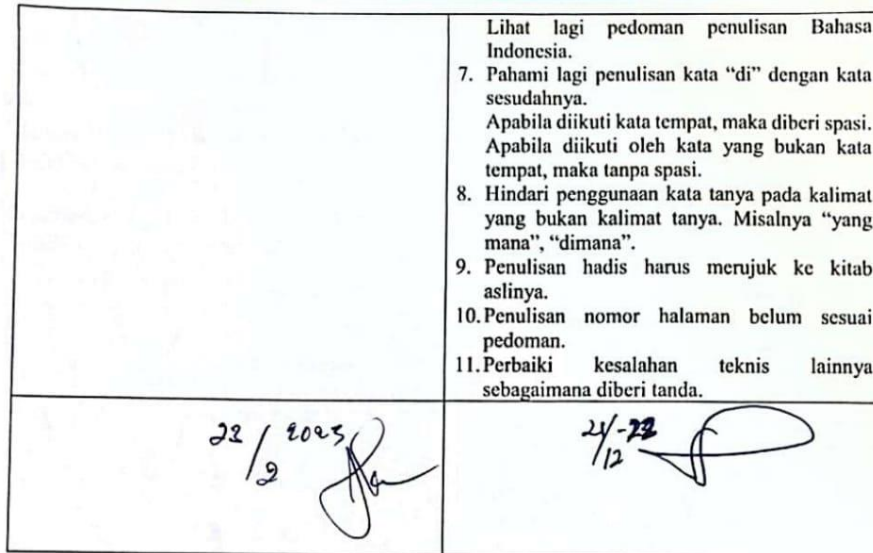 Lihat lagi pedoman penulisan Bahasa
Indonesia.
7. Pahami lagi penulisan kata “di” dengan kata
sesudahnya.
Apabila diikuti kata tempat, maka diberi spasi.
Apabila diikuti oleh kata yang bukan kata
tempat, maka tanpa spasi.
8. Hindari penggunaan kata tanya pada kalimat
yang bukan kalimat tanya. Misalnya “yang
mana”, “dimana”.
9. Penulisan hadis harus merujuk ke kitab
aslinya.
10. Penulisan nomor halaman belum sesuai
pedoman.
11. Perbaiki kesalahan teknis lainnya
sebagaimana diberi tanda.
23/2 2023